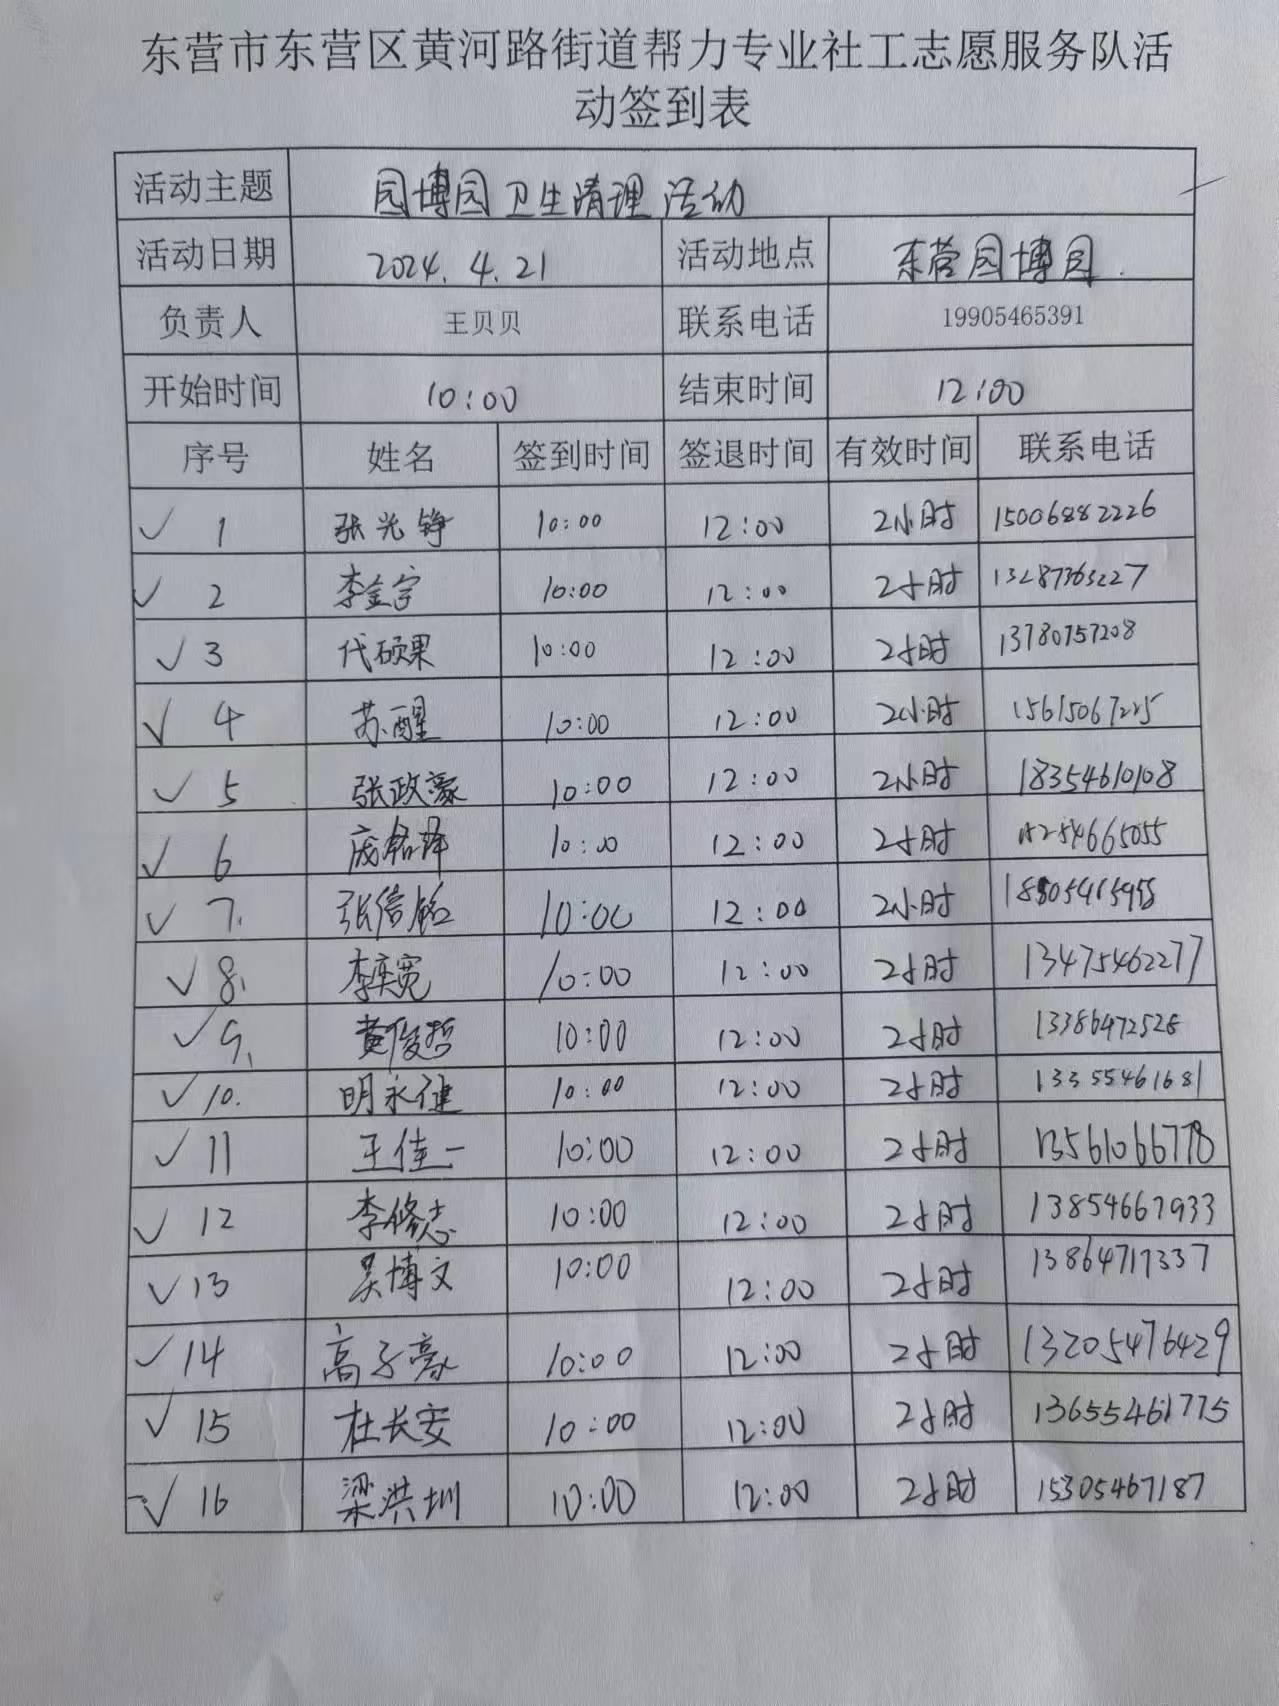 东营市东营区黄河路街道帮力专业社工志愿服务队活
动签到表
活动主题 园博园卫生清理活动
活动日期 2024.4.21 活动地点 东营园博园.
负责人 王贝贝 联系电话 19905465391
开始时间 10:00 结束时间 12:00
序号 姓名 签到时间 签退时间 有效时间 联系电话
✓ 1 张光铮 10:00 12:00 2小时 15006882226
✓ 2 李金宇 10:00 12:00 2小时 13287363227
✓ 3 代硕果 10:00 12:00 2小时 13780757208
✓ 4 苏醒 10:00 12:00 2小时 15615067225
✓ 5 张政豪 10:00 12:00 2小时 18354610108
✓ 6 庞铭泽 10:00 12:00 2小时
✓ 7. 张信铭 10:00 12:00 2小时
✓ 8. 李奕宽 10:00 12:00 2小时 13475462277
✓ 9. 黄俊哲 10:00 12:00 2小时 13386472528
✓ 10. 明永健 10:00 12:00 2小时 13355461681
✓ 11 王佳一 10:00 12:00 2小时 13561066778
✓ 12 李修志 10:00 12:00 2小时 13854667933
✓ 13 吴博文 10:00 12:00 2小时 13864717337
✓ 14 高子豪 10:00 12:00 2小时 13205476429
✓ 15 杜长安 10:00 12:00 2小时 13655461775
✓ 16 梁洪圳 10:00 12:00 2小时 15305467187